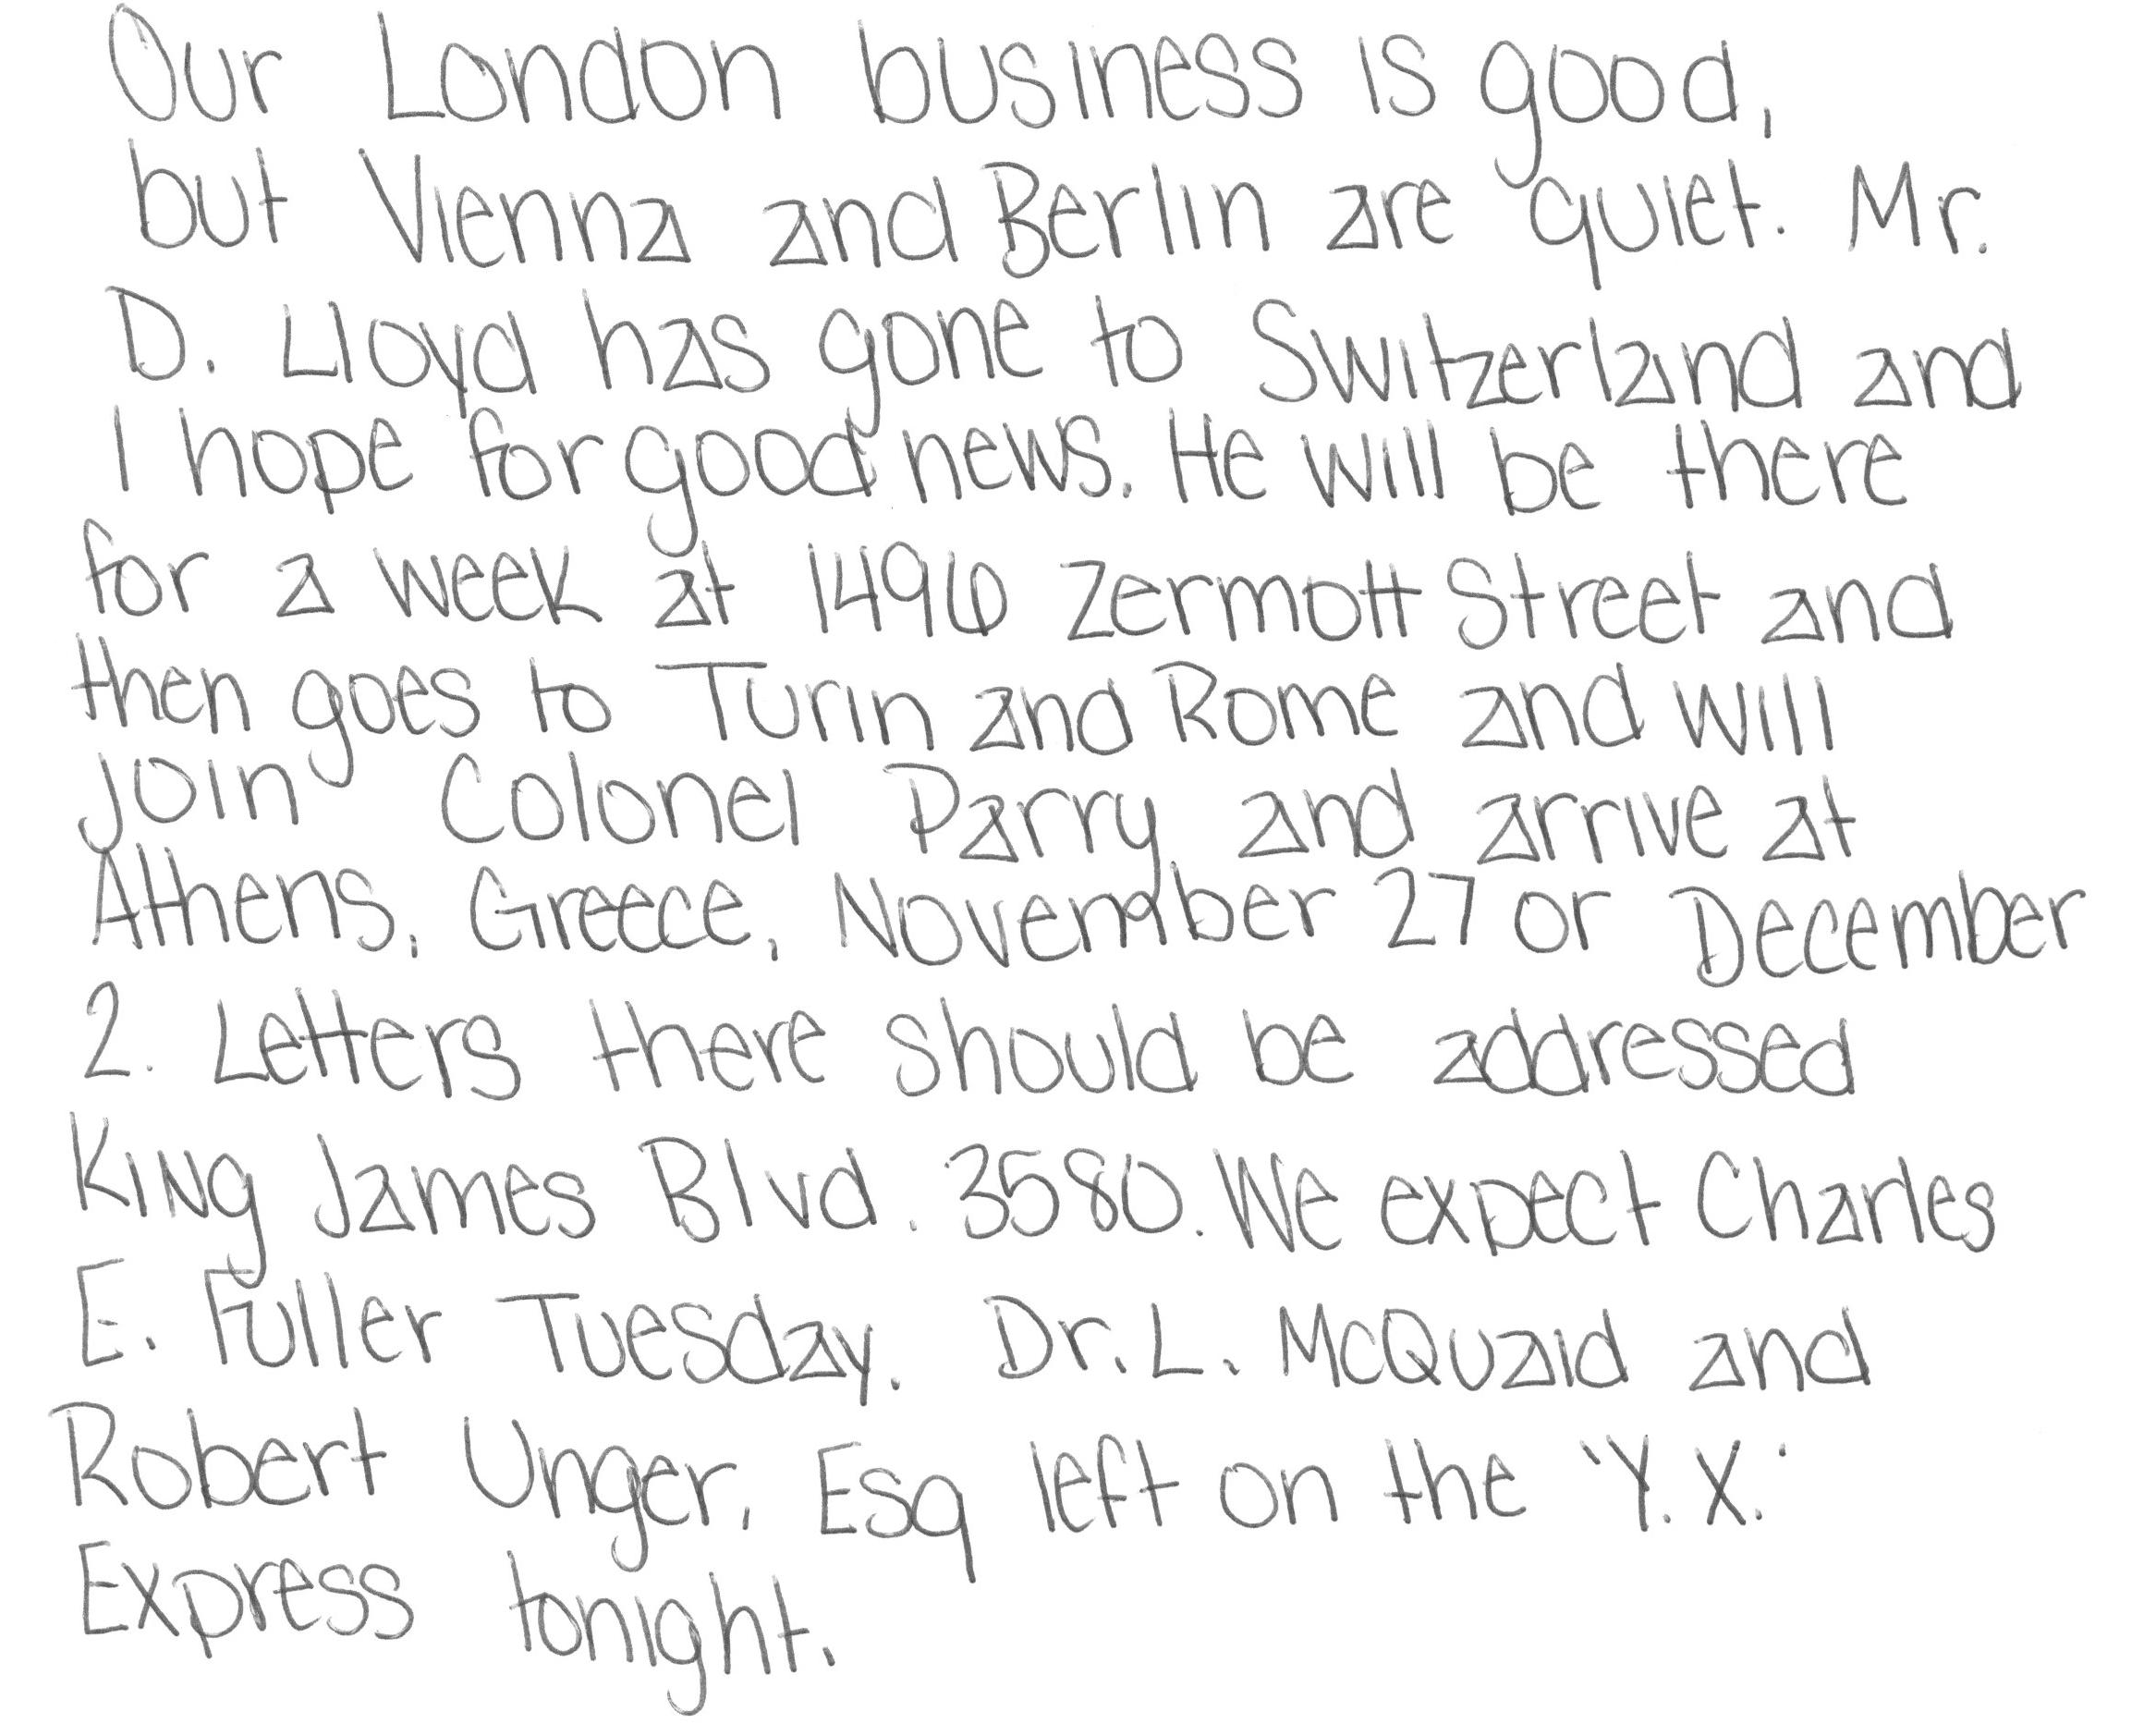 Our London business is good,
but Vienna and Berlin are quiet. Mr.
D. Lloyd has gone to Switzerland and
I hope for good news. He will be there
for a week at 1496 Zermott Street and
then goes to Turin and Rome and will
join Colonel Parry and arrive at
Athens, Greece, November 27 or December
2. Letters there should be addressed
King James Blvd. 3580. We expect Charles
E. Fuller Tuesday. Dr. L. McQuaid and
Robert Unger, Esq left on the 'Y. X.'
Express tonight.